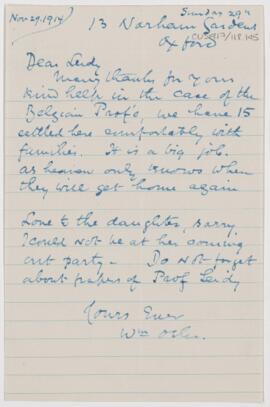 Nov 29. 1914
Sunday 29th
13 Norham Gardens
Oxford
CUS417/118.105
Dear Leidy
Many thanks for your
kind help in the case of the
Belgian Prof's, we have 15
settled here comfortably with
families. It is a big job.
as heaven only knows when
they will get home again
Love to the daughter, sorry
I could not be at her coming
out party - Do not forget
about papers of Prof Leidy
Yours Ever
Wm Osler.